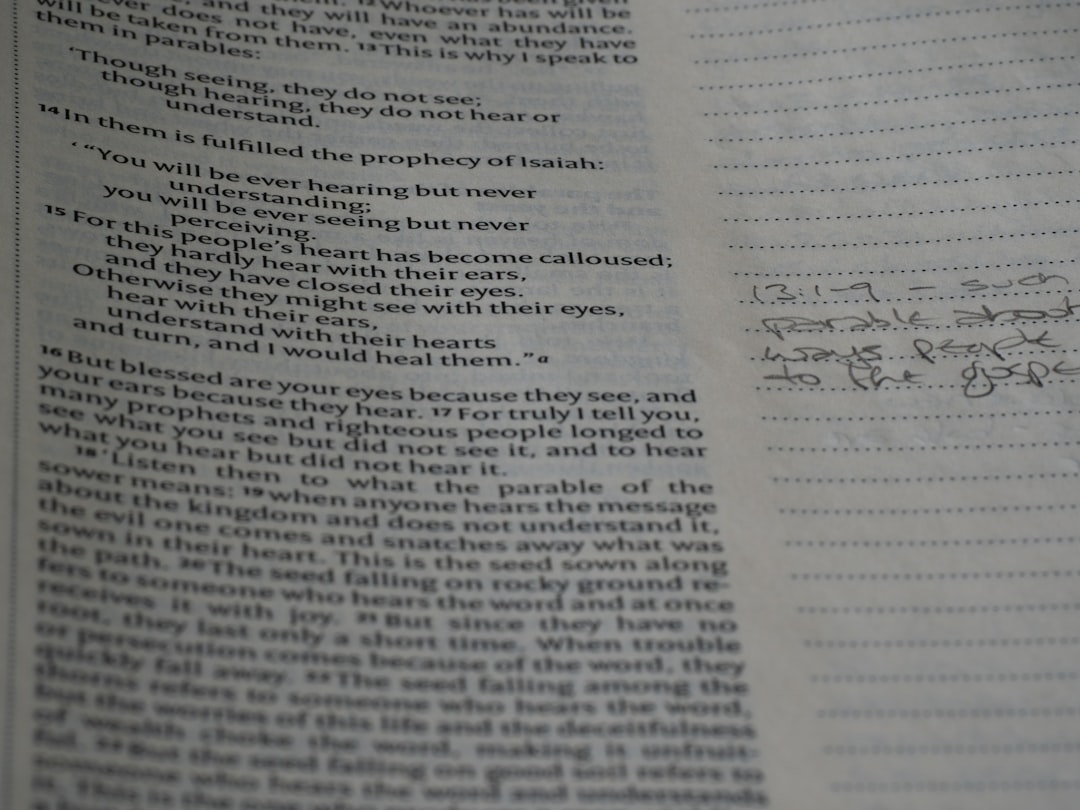 12 Whoever has will be
and they will have an abundance.
does not have, even what they have
will be taken from them. 13 This is why I speak to
them in parables:
‘Though seeing, they do not see;
though hearing, they do not hear or
understand.
14 In them is fulfilled the prophecy of Isaiah:
‘ “You will be ever hearing but never
understanding;
you will be ever seeing but never
perceiving.
15 For this people’s heart has become calloused;
they hardly hear with their ears,
and they have closed their eyes.
Otherwise they might see with their eyes,
hear with their ears,
understand with their hearts
and turn, and I would heal them.” a
16 But blessed are your eyes because they see, and
your ears because they hear. 17 For truly I tell you,
many prophets and righteous people longed to
see what you see but did not see it, and to hear
what you hear but did not hear it.
18 ‘Listen then to what the parable of the
sower means: 19 when anyone hears the message
about the kingdom and does not understand it,
the evil one comes and snatches away what was
sown in their heart. This is the seed sown along
the path. 20 The seed falling on rocky ground re-
fers to someone who hears the word and at once
receives it with joy. 21 But since they have no
root, they last only a short time. When trouble
or persecution comes because of the word, they
quickly fall away. 22 The seed falling among the
thorns refers to someone who hears the word,
but the worries of this life and the deceitfulness
of wealth choke the word, making it unfruit-
ful. 23 But the seed falling on good soil refers to
someone who hears the word and understands
it. This is the one who
13:1-9 – such
parable about
ways people
to the gospe